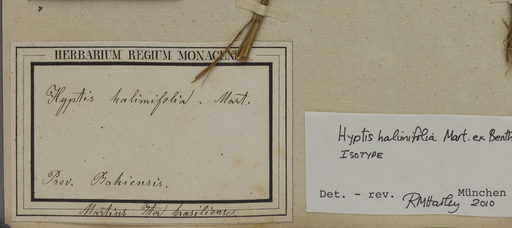 HERBARIUM REGIUM MONACEN
Hyptis halimifolia. Mart.
Prov. Bahiensis.
Martius Iter brasiliens.
Hyptis halimifolia Mart. ex Benth
ISOTYPE
Det. - rev. München
RMHarley 2010